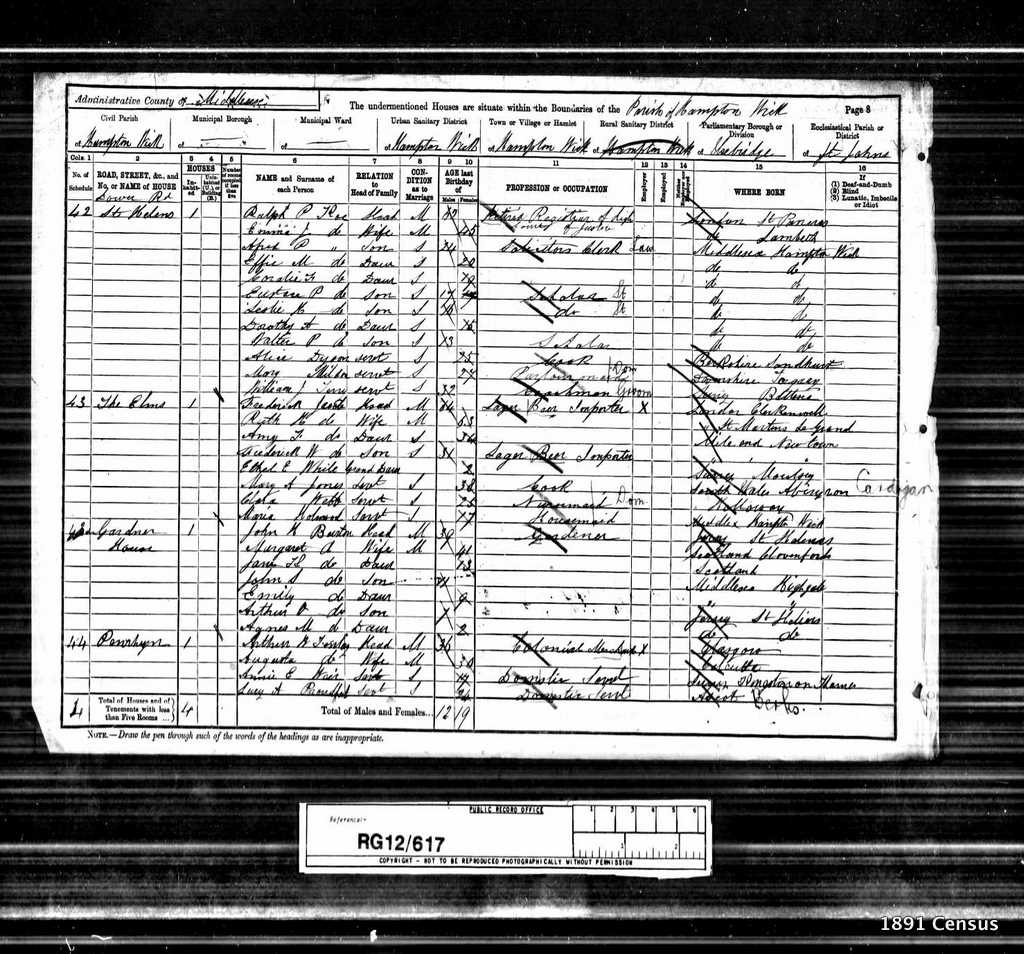 Administrative County of Middlesex
The undermentioned Houses are situate within the Boundaries of the Parish of Hampton Wick
Page 8
Civil Parish
of Hampton Wick
Municipal Borough
of
Municipal Ward
of
Urban Sanitary District
of Hampton Wick
Town or Village or Hamlet
of Hampton Wick
Rural Sanitary District
of Hampton Wick
Parliamentary Borough or Division
of Uxbridge
Ecclesiastical Parish or District
of St Johns
Cols. 1 2 3 4 5 6 7 8 9 10 11 12 13 14 15 16
No. of Schedule
ROAD, STREET, &c., and No. or NAME of HOUSE
HOUSES
Inhabited
Uninhabited (U.), or Building (B.)
Number of rooms occupied if less than five
NAME and Surname of each Person
RELATION to Head of Family
CONDITION as to Marriage
AGE last Birthday of
Males Females
PROFESSION or OCCUPATION
Employer
Employed
WHERE BORN
If
(1) Deaf-and-Dumb
(2) Blind
(3) Lunatic, Imbecile or Idiot
Lower Rd
42 St Helens 1 Ralph P Head M London St Pancras
Emma J do Wife M 45 do Lambeth
P " Son S 24 Solicitors Clerk Law Middlesex Hampton Wick
Effie M do Daur S 20 do do
Coralie F do Daur S 19 do do
Eustace P do Son S 17 Scholar St do do
Leslie H do Son S 16 do St do do
Dorothy A do Daur S 15 do do
Walter P do Son S 13 Scholar do do
Alice Dyson servt S 25 Cook Dom Berkshire Sandhurst
Mary servt S 27
William J servt S 32 Coachman Groom Surrey
43 The Elms 1 Frederick Head M 64 Lager Beer Importer X London Clerkenwell
Ruth H do Wife M 63 St Martins Le Grand
Amy F do Daur S 34 Mile end New Town
Frederick W do Son S 31 Lager Beer Importer
Ethel E White Grand Daur 2 Surrey Moulsey
Mary A Jones Servt S 38 Cook Dom South Wales Cardigan
Clara Webb Servt S 25 Nursemaid Holloway
Maria Servt S 17 Housemaid Middlx Hampton Wick
Gardner House 1 John H Burton Head M 39 Gardener Jersey St Helenas
Margaret A Wife M 41 Scotland Clovenfords
Jane do Daur 13 Scotland
John S do Son 11 Middlesex Highgate
Emily do Daur 9 " "
Arthur O do Son 7 Jersey St Heliers
Agnes M do Daur 2 do do
44 Penrhyn 1 Arthur W Head M 36 Colonial Merchant X Glasgow
Augusta do Wife M 30 Calcutta
Annie E Weir Servt S 17 Domestic Servt Surrey Kingston on Thames
Lucy A Servt S Domestic Servt Ascot Berks.
4 Total of Houses and of Tenements with less than Five Rooms ... 4
Total of Males and Females... 12 19
NOTE.—Draw the pen through such of the words of the headings as are inappropriate.
PUBLIC RECORD OFFICE
Reference:-
RG12/617
1 2 3 4 5 6
1 2
COPYRIGHT - NOT TO BE REPRODUCED PHOTOGRAPHICALLY WITHOUT PERMISSION
1891 Census